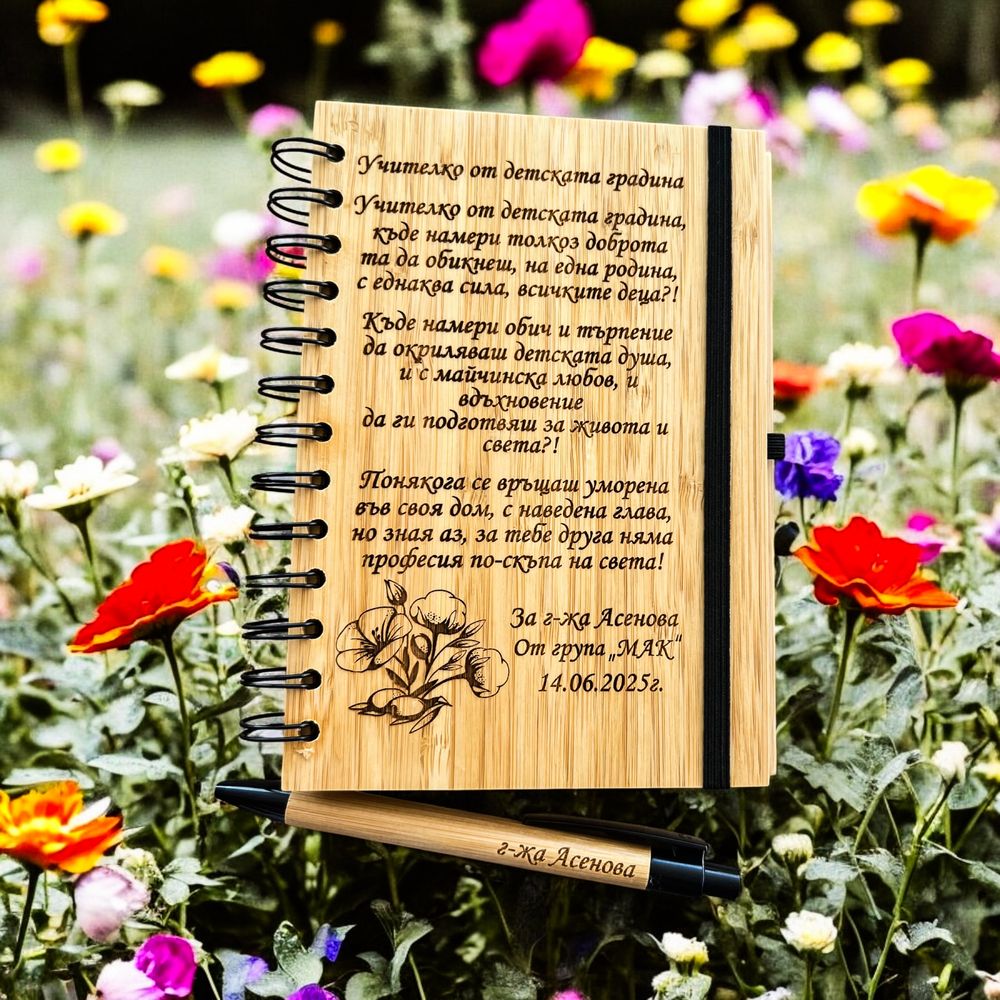 Учителко от детската градина
Учителко от детската градина,
къде намери толкоз доброта
та да обикнеш, на една родина,
с еднаква сила, всичките деца?!
Къде намери обич и търпение
да окриляваш детската душа,
и с майчинска любов, и
вдъхновение
да ги подготвяш за живота и
света?!
Понякога се връщаш уморена
във своя дом, с наведена глава,
но зная аз, за тебе друга няма
професия по-скъпа на света!
За г-жа Асенова
От група „МАК“
14.06.2025г.
г-жа Асенова